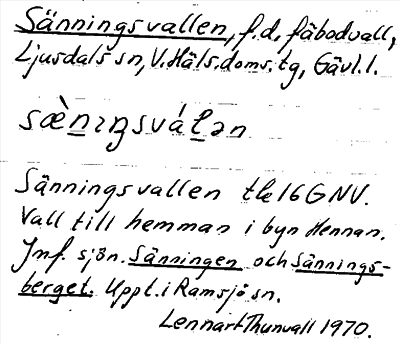 Sänningsvallen, f.d. fäbodvall,
Ljusdals sn, V. Häls. doms. tg, Gävl. l.
sæ̀nıŋsváḷən
Sänningsvallen tle 16G NV.
Vall till hemman i byn Hennan.
Jmf. sjön. Sänningen och Sännings-
berget. Uppt. i Ramsjö sn.
Lennart Thunvall 1970.